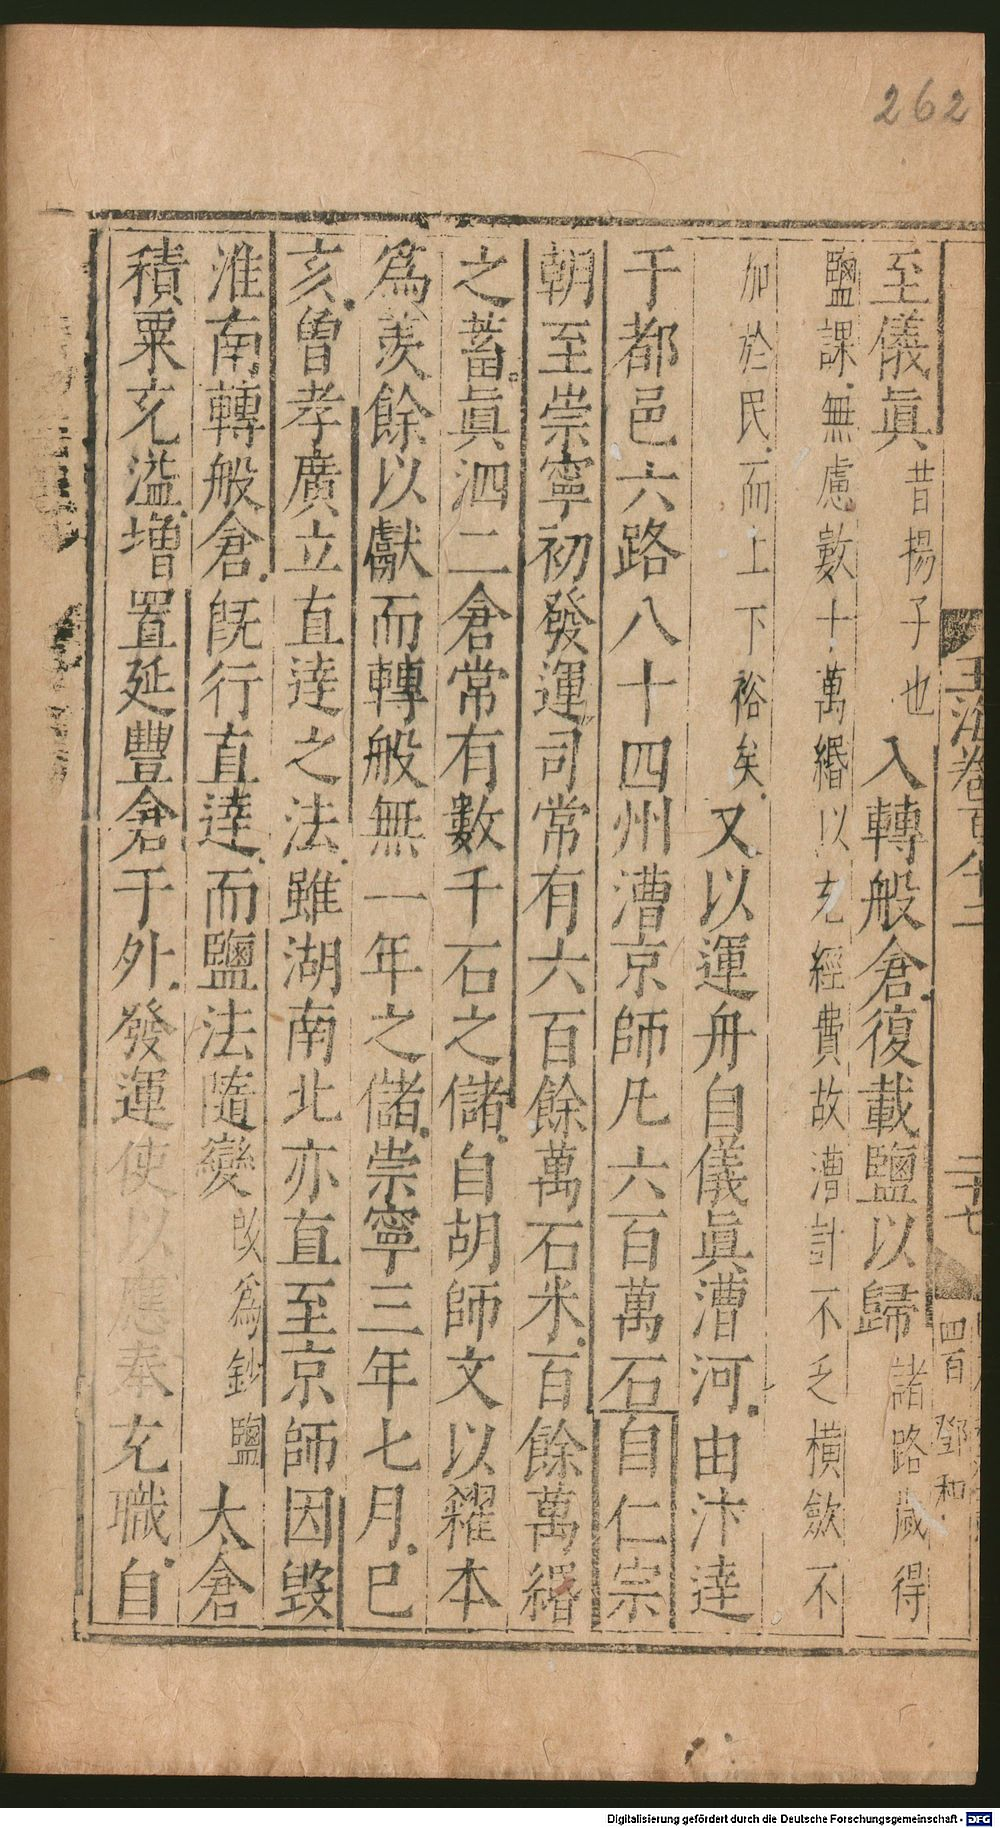 262
玉海卷百八二
二十七
四百
鄧和
至儀眞昔揚子也入轉般倉復載鹽以歸諸路歲得
鹽課無慮數十萬緡以充經費故漕計不乏橫斂不
加於民而上下裕矣又以運舟自儀眞漕河由汴達
于都邑六路八十四州漕京師凡六百萬石自仁宗
朝至崇寧初發運司常有六百餘萬石米百餘萬緡
之蓄眞泗二倉常有數千石之儲自胡師文以糴本
爲羨餘以獻而轉般無一年之儲崇寧三年七月己
亥曾孝廣立直逹之法雖湖南北亦直至京師因毀
淮南轉般倉旣行直逹而鹽法隨變改爲鈔鹽太倉
積粟充溢增置延豐倉于外發運使以應奉充職自
Digitalisierung gefördert durch die Deutsche Forschungsgemeinschaft - DFG